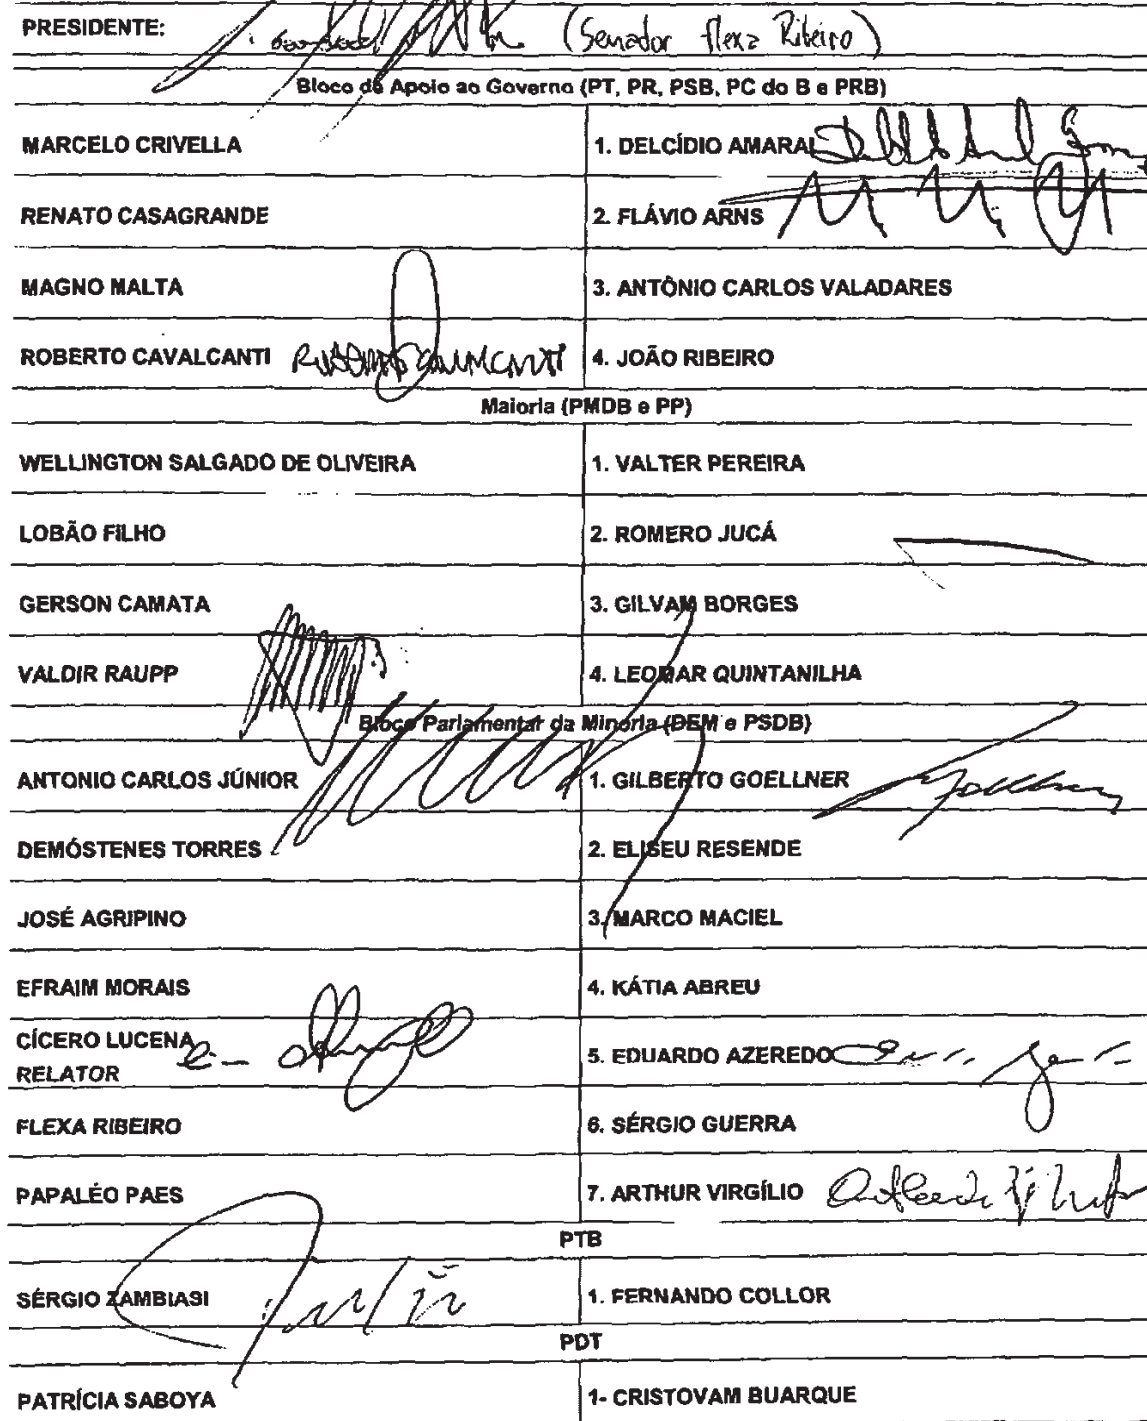 PRESIDENTE: (Senador flexa Ribeiro)
Bloco de Apoio ao Governo (PT, PR, PSB, PC do B e PRB)
MARCELO CRIVELLA 1. DELCÍDIO AMARAL
RENATO CASAGRANDE 2. FLÁVIO ARNS
MAGNO MALTA 3. ANTÔNIO CARLOS VALADARES
ROBERTO CAVALCANTI 4. JOÃO RIBEIRO
Maioria (PMDB e PP)
WELLINGTON SALGADO DE OLIVEIRA 1. VALTER PEREIRA
LOBÃO FILHO 2. ROMERO JUCÁ
GERSON CAMATA 3. GILVAM BORGES
VALDIR RAUPP 4. LEOMAR QUINTANILHA
Bloco Parlamentar da Minoria (DEM e PSDB)
ANTONIO CARLOS JÚNIOR 1. GILBERTO GOELLNER
DEMÓSTENES TORRES 2. ELISEU RESENDE
JOSÉ AGRIPINO 3. MARCO MACIEL
EFRAIM MORAIS 4. KÁTIA ABREU
CÍCERO LUCENA 5. EDUARDO AZEREDO
RELATOR
FLEXA RIBEIRO 6. SÉRGIO GUERRA
PAPALÉO PAES 7. ARTHUR VIRGÍLIO
PTB
SÉRGIO ZAMBIASI 1. FERNANDO COLLOR
PDT
PATRÍCIA SABOYA 1- CRISTOVAM BUARQUE